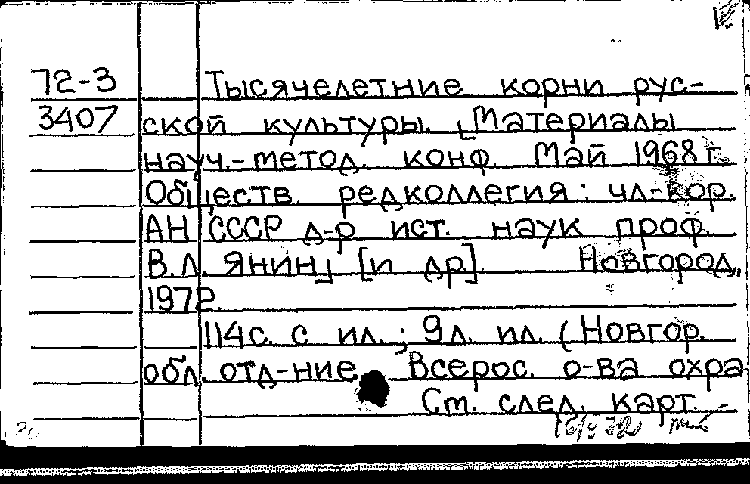 72-3 Тысячелетние корни рус-
3407 ской культуры. [Материалы
науч.-метод. конф. Май 1968 г.
Обществ. редколлегия: чл-кор.
АН СССР д-р ист. наук проф.
В.Л. Янин] [и др]. Новгород,
1972.
114 с. с ил.; 9 л. ил. (Новгор.
обл. отд-ние Всерос. о-ва охра
См. след. карт.